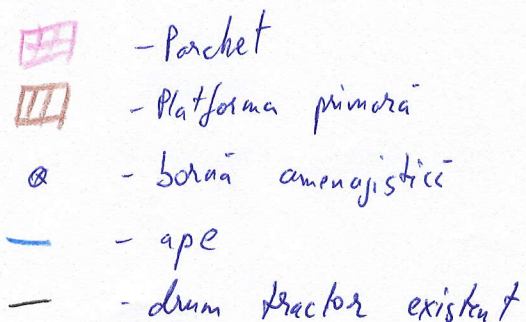 - Parchet
- Platforma primară
- bornă amenajistică
- ape
- drum tractor existent